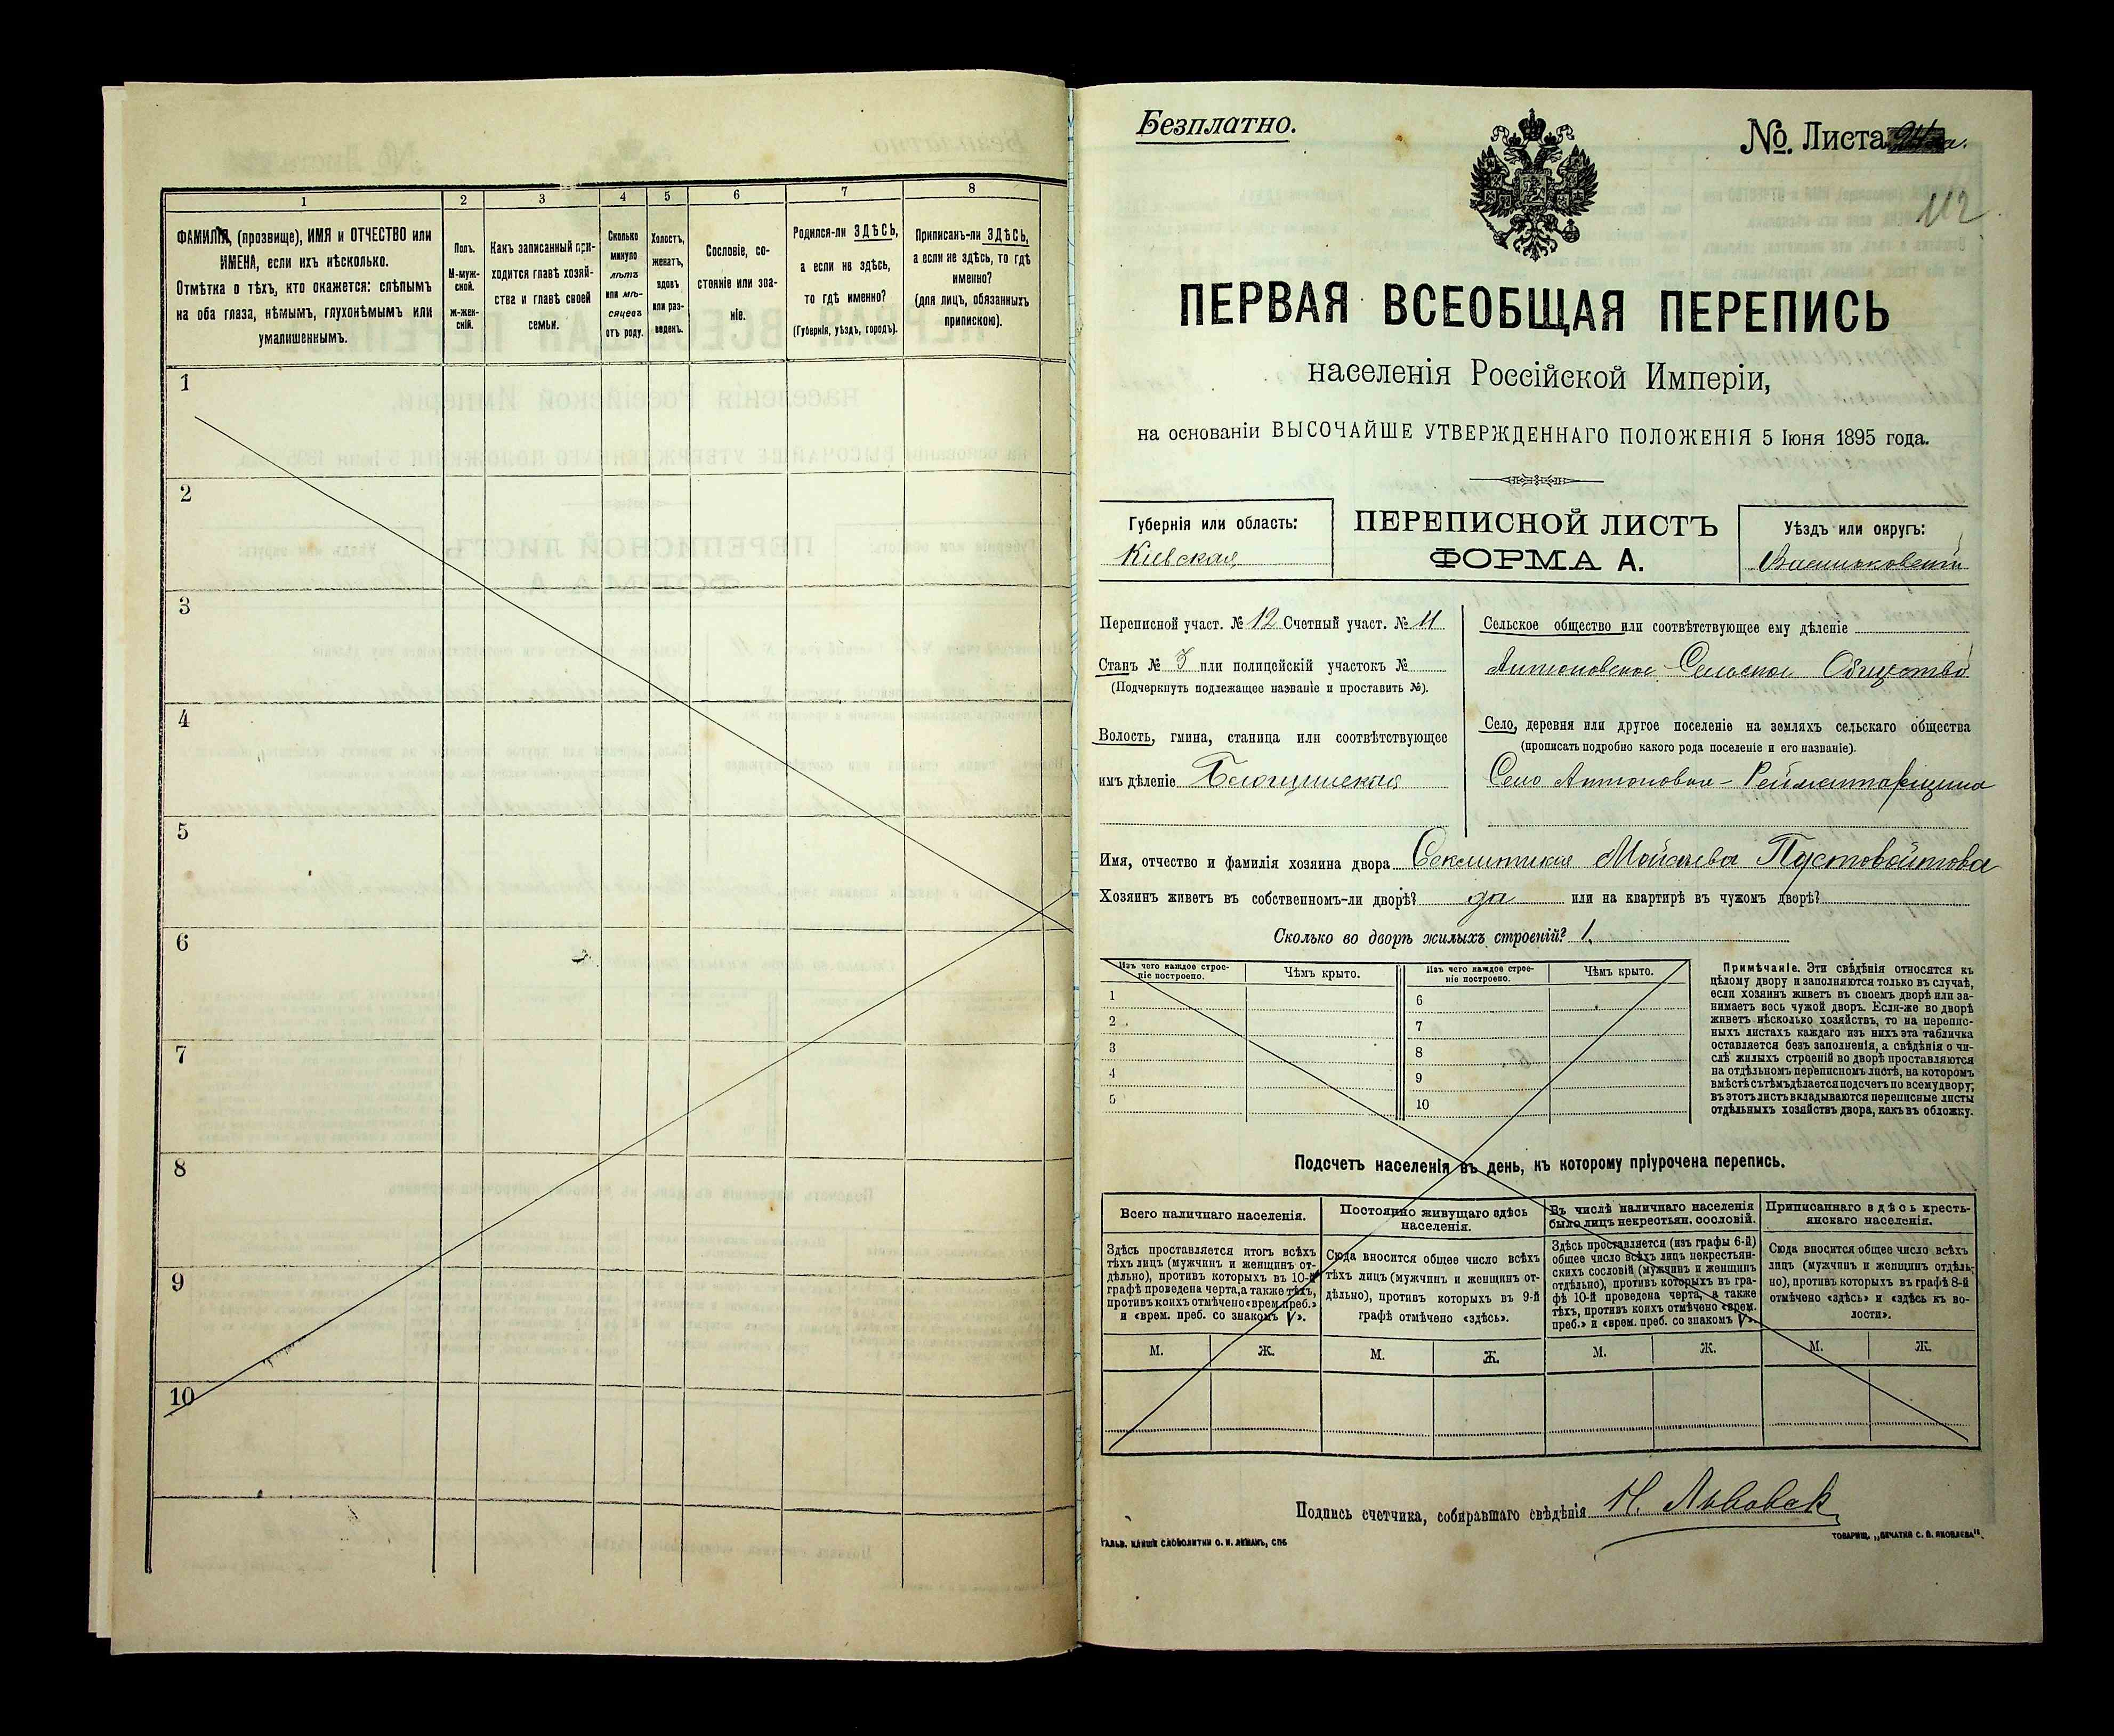 1
2
3
4
5
6
7
8
ФАМИЛІЯ, (прозвище), ИМЯ и ОТЧЕСТВО или
ИМЕНА, если ихъ нѣсколько.
Отмѣтка о тѣхъ, кто окажется: слѣпымъ
на оба глаза, нѣмымъ, глухонѣмымъ или
умалишеннымъ.
Полъ.
М-муж-
ской.
Ж-жен-
скій.
Какъ записанный при-
ходится главѣ хозяй-
ства и главѣ своей
семьи.
Сколько
минуло
лѣтъ
или мѣ-
сяцевъ
отъ роду.
Холостъ,
женатъ,
вдовъ
или раз-
веденъ.
Сословіе, со-
стояніе или зва-
ніе.
Родился-ли ЗДѢСЬ,
а если не здѣсь,
то гдѣ именно?
(Губернія, уѣздъ, городъ).
Приписанъ-ли ЗДѢСЬ,
а если не здѣсь, то гдѣ
именно?
(для лицъ, обязанныхъ
припискою).
1
2
3
4
5
6
7
8
9
10
Безплатно.
№. Листа
112
ПЕРВАЯ ВСЕОБЩАЯ ПЕРЕПИСЬ
населенія Россійской Имперіи,
на основаніи ВЫСОЧАЙШЕ УТВЕРЖДЕННАГО ПОЛОЖЕНІЯ 5 Іюня 1895 года.
Губернія или область:
Кіевская
ПЕРЕПИСНОЙ ЛИСТЪ
ФОРМА А.
Уѣздъ или округъ:
Васильковскій
Переписной участ. № 12 Счетный участ. № 11
Станъ № 3 или полицейскій участокъ №
(Подчеркнуть подлежащее названіе и проставить №).
Волость, гмина, станица или соотвѣтствующее
имъ дѣленіе
Сельское общество или соотвѣтствующее ему дѣленіе
Антоновское Сельское Общество
Село, деревня или другое поселеніе на земляхъ сельскаго общества
(прописать подробно какого рода поселеніе и его названіе).
Село Антоновка -
Имя, отчество и фамилія хозяина двора Моисеева Пустовойтова
Хозяинъ живетъ въ собственномъ-ли дворѣ? да или на квартирѣ въ чужомъ дворѣ?
Сколько во дворѣ жилыхъ строеній? 1.
Изъ чего каждое строе-
ніе построено.
Чѣмъ крыто.
Изъ чего каждое строе-
ніе построено.
Чѣмъ крыто.
1
2
3
4
5
6
7
8
9
10
Примѣчаніе. Эти свѣдѣнія относятся къ
цѣлому двору и заполняются только въ случаѣ,
если хозяинъ живетъ въ своемъ дворѣ или за-
нимаетъ весь чужой дворъ. Если-же во дворѣ
живетъ нѣсколько хозяйствъ, то на перепис-
ныхъ листахъ каждаго изъ нихъ эта табличка
оставляется безъ заполненія, а свѣдѣнія о чи-
слѣ жилыхъ строеній во дворѣ проставляются
на отдѣльномъ переписномъ листѣ, на которомъ
вмѣстѣ съ тѣмъ дѣлается подсчетъ по всему двору;
въ этотъ листъ вкладываются переписные листы
отдѣльныхъ хозяйствъ двора, какъ въ обложку.
Подсчетъ населенія въ день, къ которому пріурочена перепись.
Всего наличнаго населенія.
Постоянно живущаго здѣсь
населенія.
Въ числѣ наличнаго населенія
было лицъ некрестьян. сословій.
Приписаннаго здѣсь кресть-
янскаго населенія.
Здѣсь проставляется итогъ всѣхъ
тѣхъ лицъ (мужчинъ и женщинъ от-
дѣльно), противъ которыхъ въ 10-й
графѣ проведена черта, а также тѣхъ,
противъ коихъ отмѣчено «врем. преб.»
и «врем. преб. со знакомъ V».
Сюда вносится общее число всѣхъ
тѣхъ лицъ (мужчинъ и женщинъ от-
дѣльно), противъ которыхъ въ 9-й
графѣ отмѣчено «здѣсь».
Здѣсь проставляется (изъ графы 6-й)
общее число всѣхъ лицъ некрестьян-
скихъ сословій (мужчинъ и женщинъ
отдѣльно), противъ которыхъ въ гра-
фѣ 10-й проведена черта, а также
тѣхъ, противъ коихъ отмѣчено «врем.
преб.» и «врем. преб. со знакомъ V».
Сюда вносится общее число всѣхъ
лицъ (мужчинъ и женщинъ отдѣль-
но), противъ которыхъ въ графѣ 8-й
отмѣчено «здѣсь» и «здѣсь къ во-
лости».
М.
Ж.
М.
Ж.
М.
Ж.
М.
Ж.
Подпись счетчика, собиравшаго свѣдѣнія Н.
ТОВАРИЩ. „ПЕЧАТНЯ С. П. ЯКОВЛЕВА".